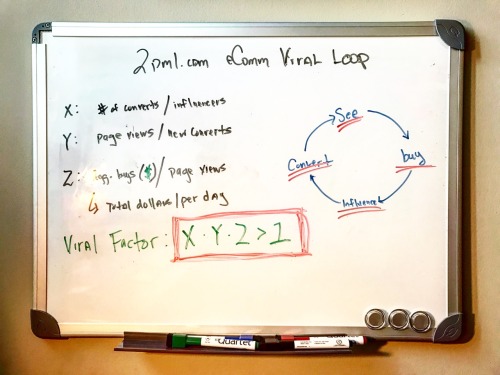 2pml.com eComm Viral Loop
X: # of converts / influencers
Y: page views / new converts
Z: agg. buys ($) / page views
↳ Total dollars / per day
Viral Factor: X · Y · Z > 1
See
buy
Influence
Convert
Quartet